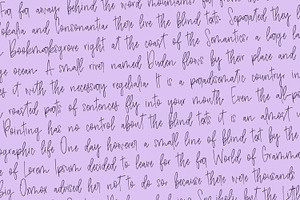 Far far away, behind the word mountains, far from
okalia and Consonantia there live the blind texts. Separated they
Bookmarksgrove right at the coast of the Semantics, a large la
ge ocean. A small river named Duden flows by their place and
es it with the necessary regelialia. It is a paradisematic country, in
roasted parts of sentences fly into your mouth. Even the all-p
Pointing has no control about the blind texts it is an almost
ographic life One day however a small line of blind text by the
of Lorem Ipsum decided to leave for the far World of Gramma
Big Oxmox advised her not to do so, because there were thousands